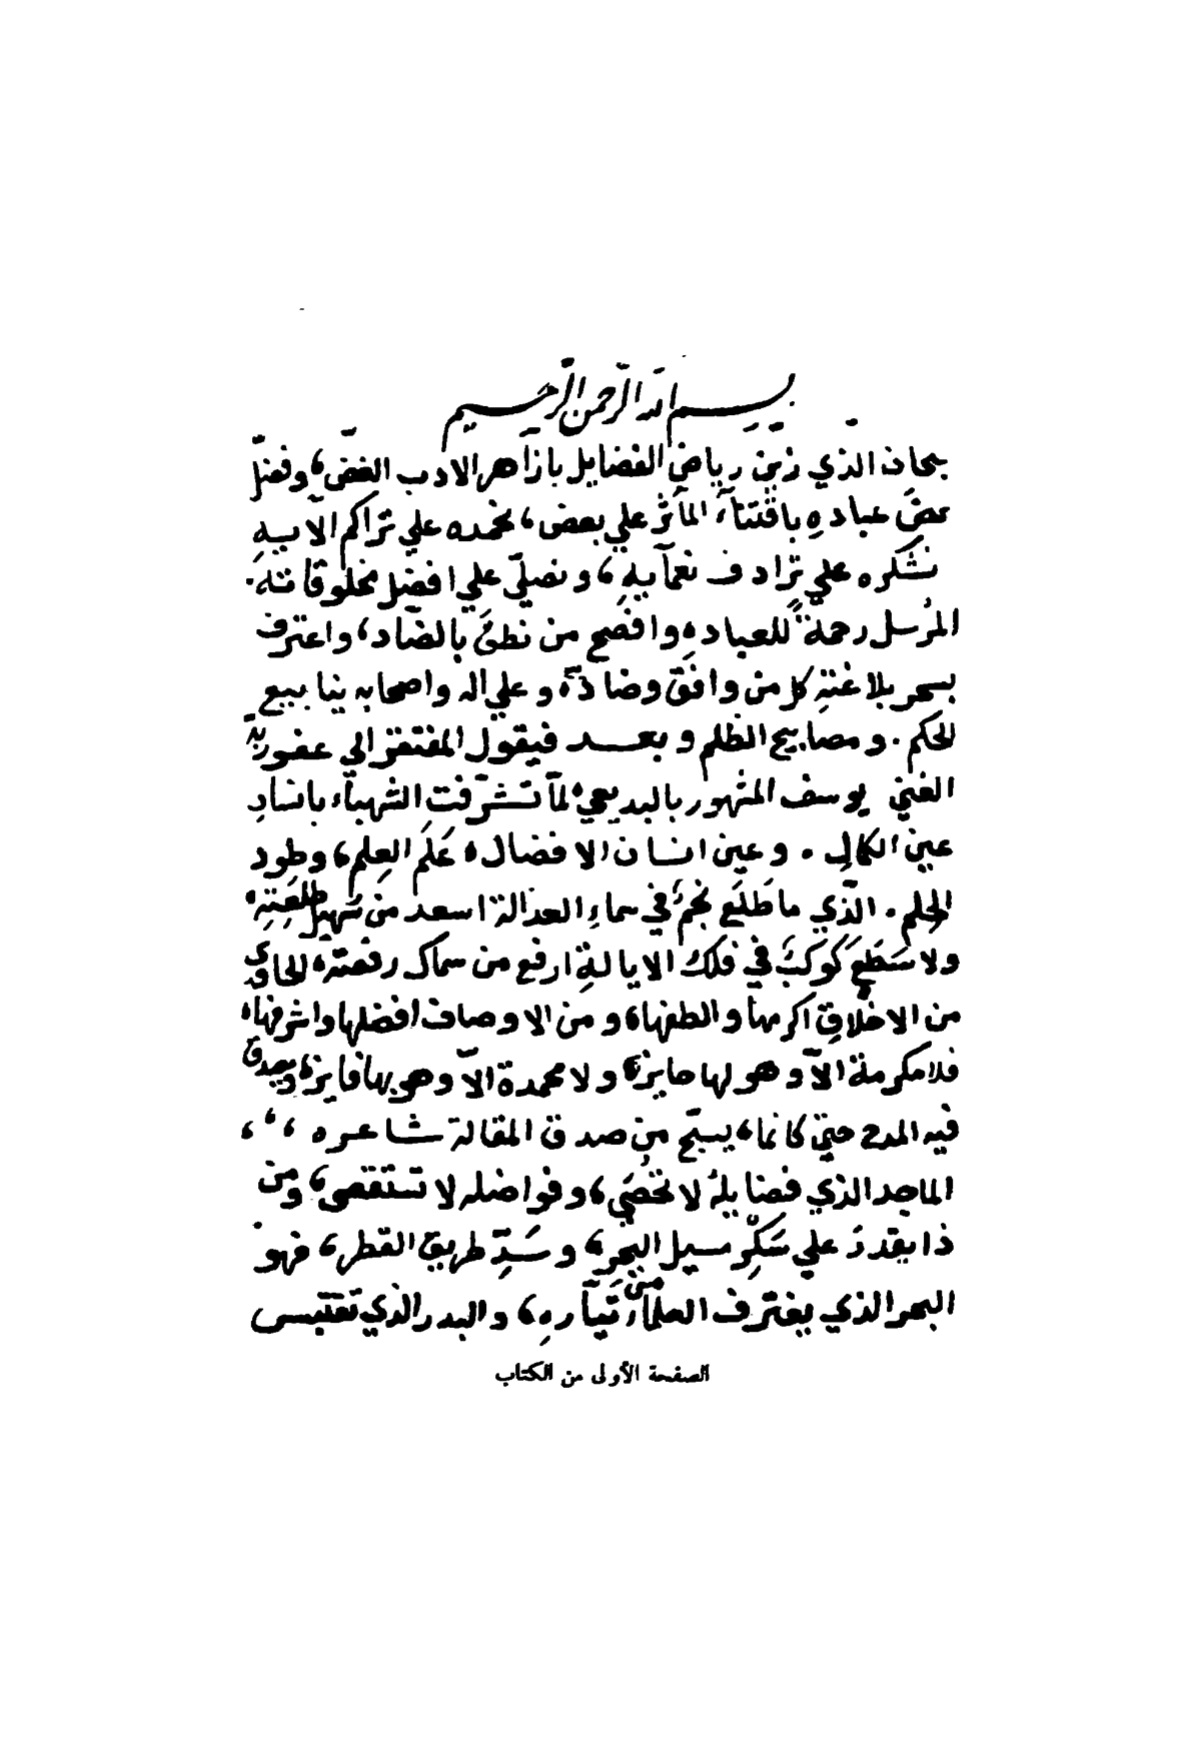 بسم الله الرحمن الرحيم
بحان الذي زين رياض الفضايل بازاهر الادب الغض، وفضّل
بعضَ عبادهِ باقتنآء المآثر علي بعض، نحمده علي تراكم الآييهِ
نشكره علي ترادف نعمآيهِ، ونصلّي علي افضل مخلوقاته.
المُرسل رحمةً للعباد، وافصح من نطقَ بالضّاد، واعترف
بسحر بلاغتهِ كل من وافق وضادّه، وعلي اله واصحابه ينابيع
الحكم. ومصابيح الظلم وبعـــد فيقول المفتقر الي عفو ربّه
الغني يوسف المشهور بالبديعي، لمّا تشرّفتِ الشهبآء بانسانِ
عينِ الكمالِ. وعينِ انسان الافضال، عَلَم العِلم، وطود
الحِلم. الّذي ما طَلَعَ نجمٌ في سماءِ العدالة اسعد من سُهيل طلعَتِهِ،
ولا سَطَعَ كَوكَبٌ في فلك الايالةِ ارفع من سماك رفعته، الحاوي
من الاخلاقِ اكرمها والطفها، ومن الاوصاف افضلها واشرفها،
فلا مكرمة الاّ وهو لها حايز، ولا محمدة الاّ وهو بها فايز، ويصدق
فيه المدح حتيّ كانما، يسبّح من صدق المقالة شاعره ، ، ،
الماجد الذي فضايلهُ لا تحُصَي، وفواضله لا تستقصي، ومن
ذا يقدرُ علي سَكِّر مسيل البَحرِ، وسَدِّ طريق القطر، فهو
البحر الذي يغترف العلمآءُ من تيّارهِ، والبدر الذي تقتبس
الصفحة الأولى من الكتاب